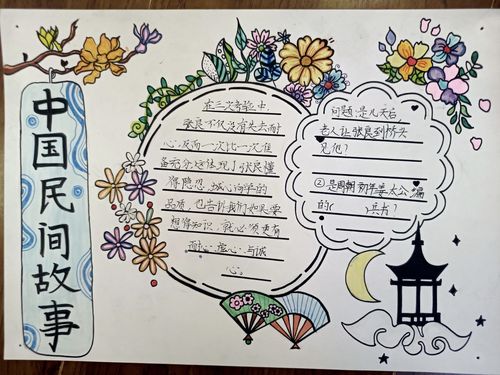 中国民间故事
在三次考验中,
张良不仅没有失去耐
心,反而一次比一次准
备充分,这体现了张良懂
得隐忍、诚心向学的
品质,也告诉我们如果要
想得知识,就必须更有
耐心、虚心与诚
心。
问题:①几天后,
老人让张良到桥头
见他?
②是周朝初年姜太公编
的( )兵书?